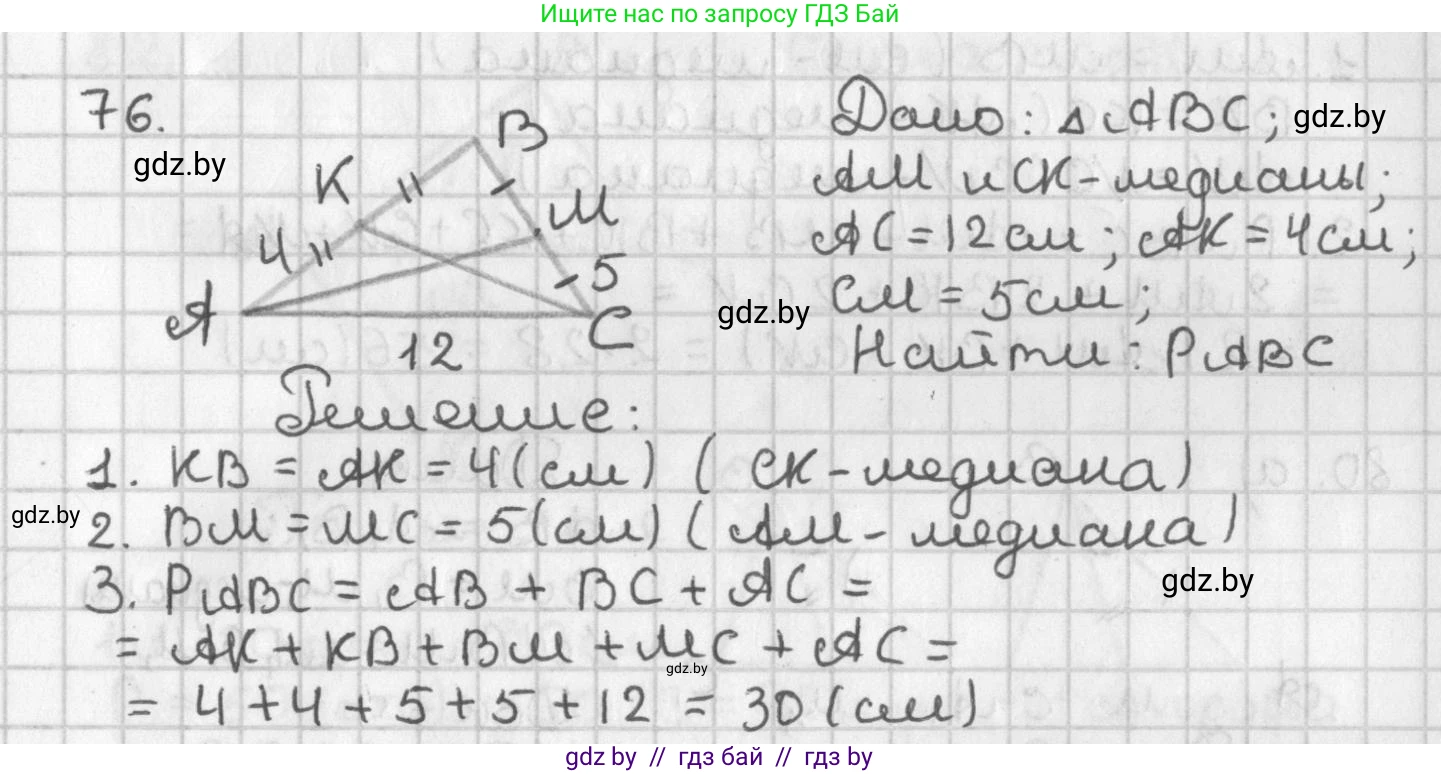 Ищите нас по запросу ГДЗ Бай
76.
gdz.by
K
B
M
4
5
A
C
12
Дано: △ABC; gdz.by
AM и CK - медианы;
AC = 12 см; AK = 4 см;
gdz.by CM = 5 см;
Найти: PABC
Решение:
1. KB = AK = 4 (см) (CK - медиана)
gdz.by
2. BM = MC = 5 (см) (AM - медиана)
3. PABC = AB + BC + AC =
gdz.by
= AK + KB + BM + MC + AC =
gdz.by
= 4 + 4 + 5 + 5 + 12 = 30 (см)
gdz by // гдз бай // гдз by